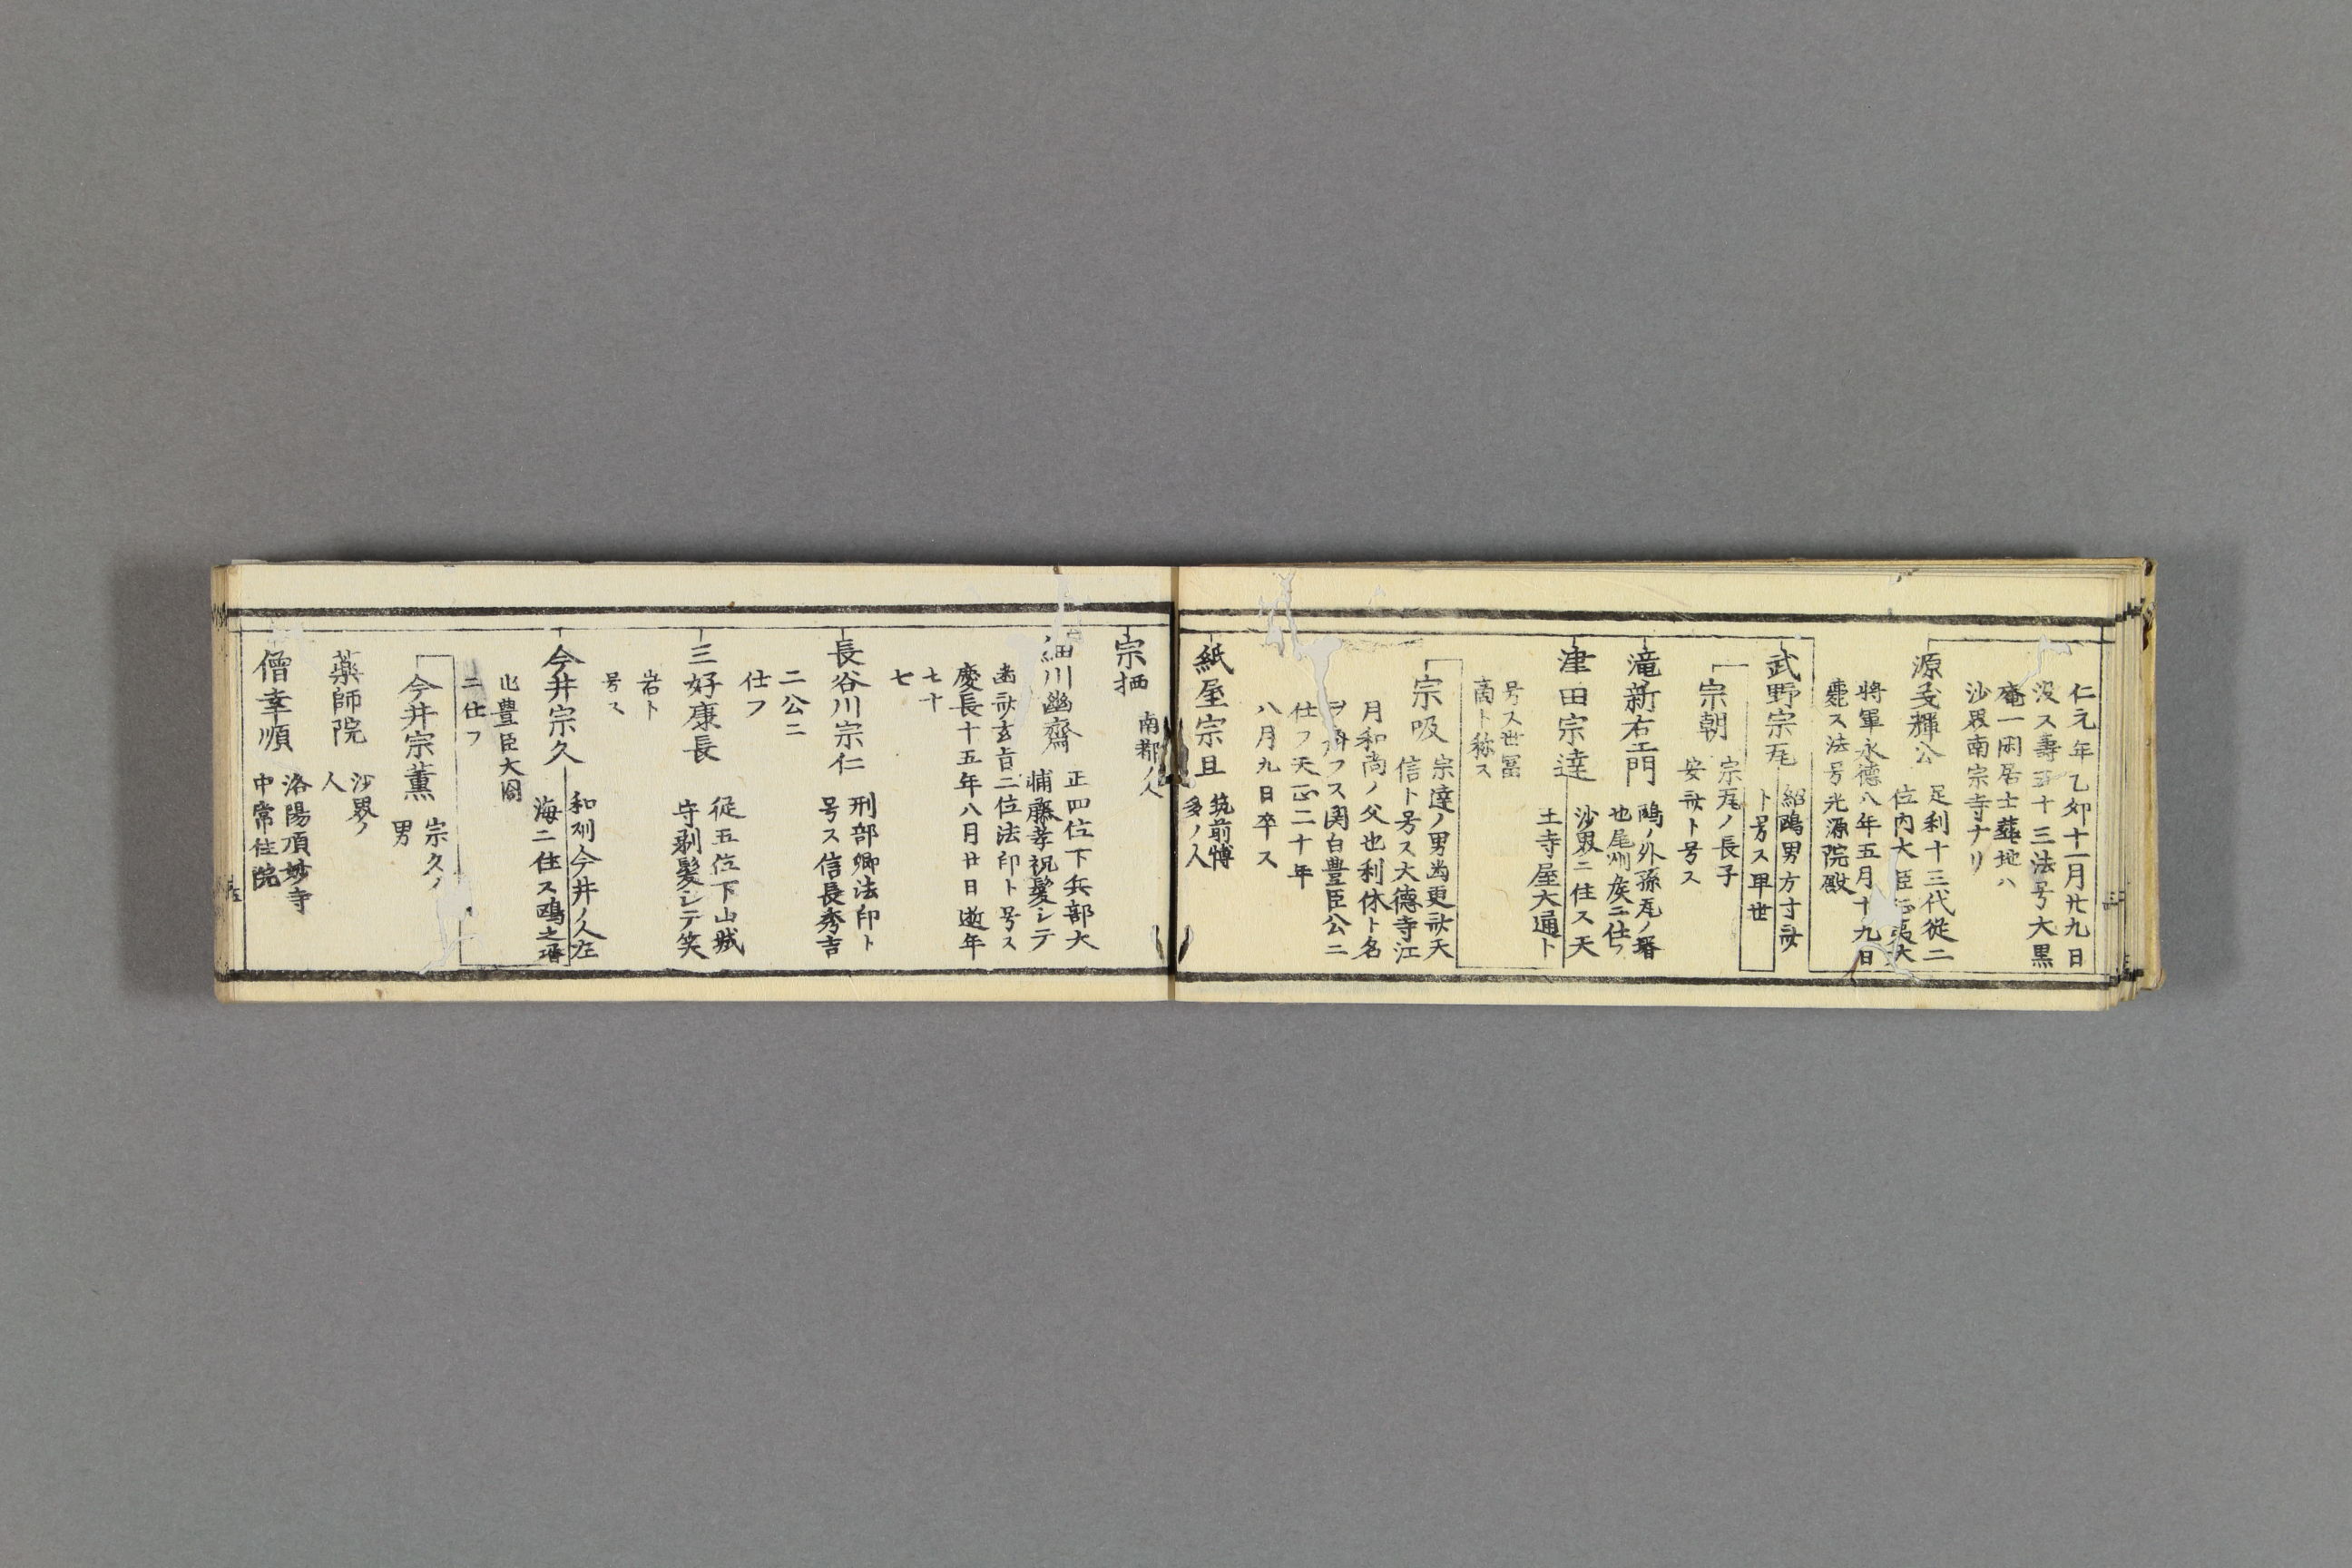 仁元年乙卯十一月廿九日
没ス壽五十三法号大黒
庵一閑居士葬地ハ
沙界南宗寺ナリ
源義輝公
足利十三代從二
位内大臣征夷大
將軍永德八年五月十九日
薨ス法号光源院殿
武野宗瓦
紹鴎男方寸斎
ト号ス早世
宗朝
宗瓦ノ長子
安斎ト号ス
滝新右エ門
鴎ノ外孫瓦ノ婿
也尾州侯ニ仕フ
津田宗達
沙界ニ住ス天
王寺屋大通ト
号ス世冨
商ト称ス
宗吸
宗達ノ男幽更斎天
信ト号ス大德寺江
月和尚ノ父也利休ト名
ヲ フス関白豊臣公ニ
仕フ天正二十年
八月九日卒ス
紙屋宗旦
筑前愽
多ノ人
宗栖
南都ノ人
細川幽齋
正四位下兵部大
輔藤孝祝髪シテ
幽斎玄旨二位法印ト号ス
慶長十五年八月廿日逝年
七十
七
長谷川宗仁
刑部卿法印ト
号ス信長秀吉
二公ニ
仕フ
三好康長
從五位下山城
守剃髪シテ笑
岩ト
号ス
今井宗久
和州今井ノ人左
海ニ住ス鴎之婿
也豊臣大閤
ニ仕フ
今井宗薫
宗久ノ
男
藥師院
沙界ノ
人
僧幸順
洛陽頂妙寺
中常住院